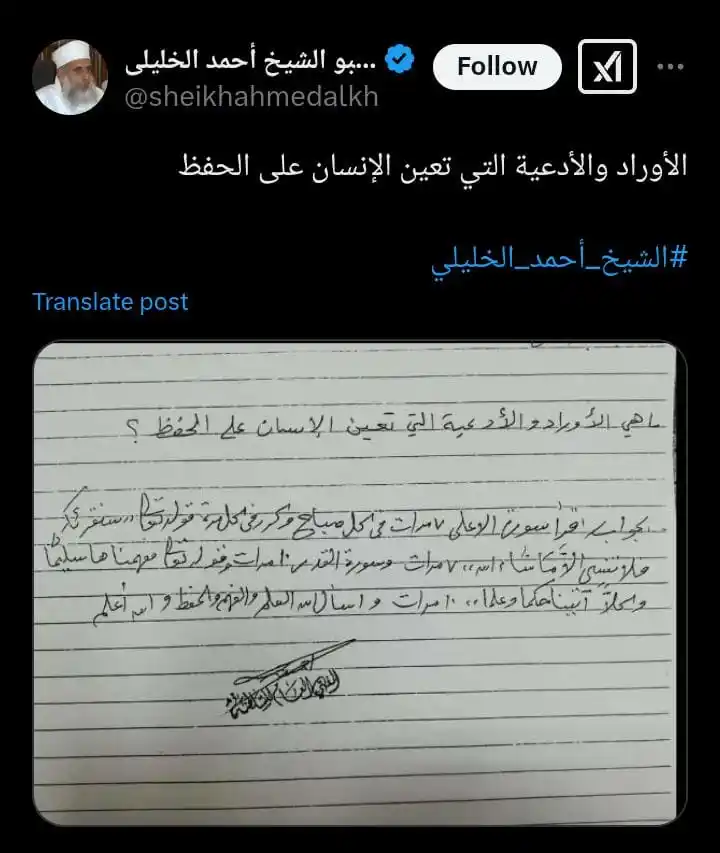 ...بو الشيخ أحمد الخليلى
Follow
@sheikhahmedalkh
الأوراد والأدعية التي تعين الإنسان على الحفظ
#الشيخ_أحمد_الخليلي
Translate post
ما هي الأوراد والأدعية التي تعين الإنسان على الحفظ ؟
الجواب اقرأ سورة الاعلى ٧ مرات في كل صباح وكرر في كل مرة قوله تعالى ,, سنقرئك
فلا تنسى إلا ما شاء الله ,, ٧ مرات وسورة القدر ١٠ مرات وقوله تعالى ففهمناها سليمان
وكلاً آتينا حكما وعلما ,, ١٠ مرات واسأل الله العلم والفهم والحفظ والله أعلم